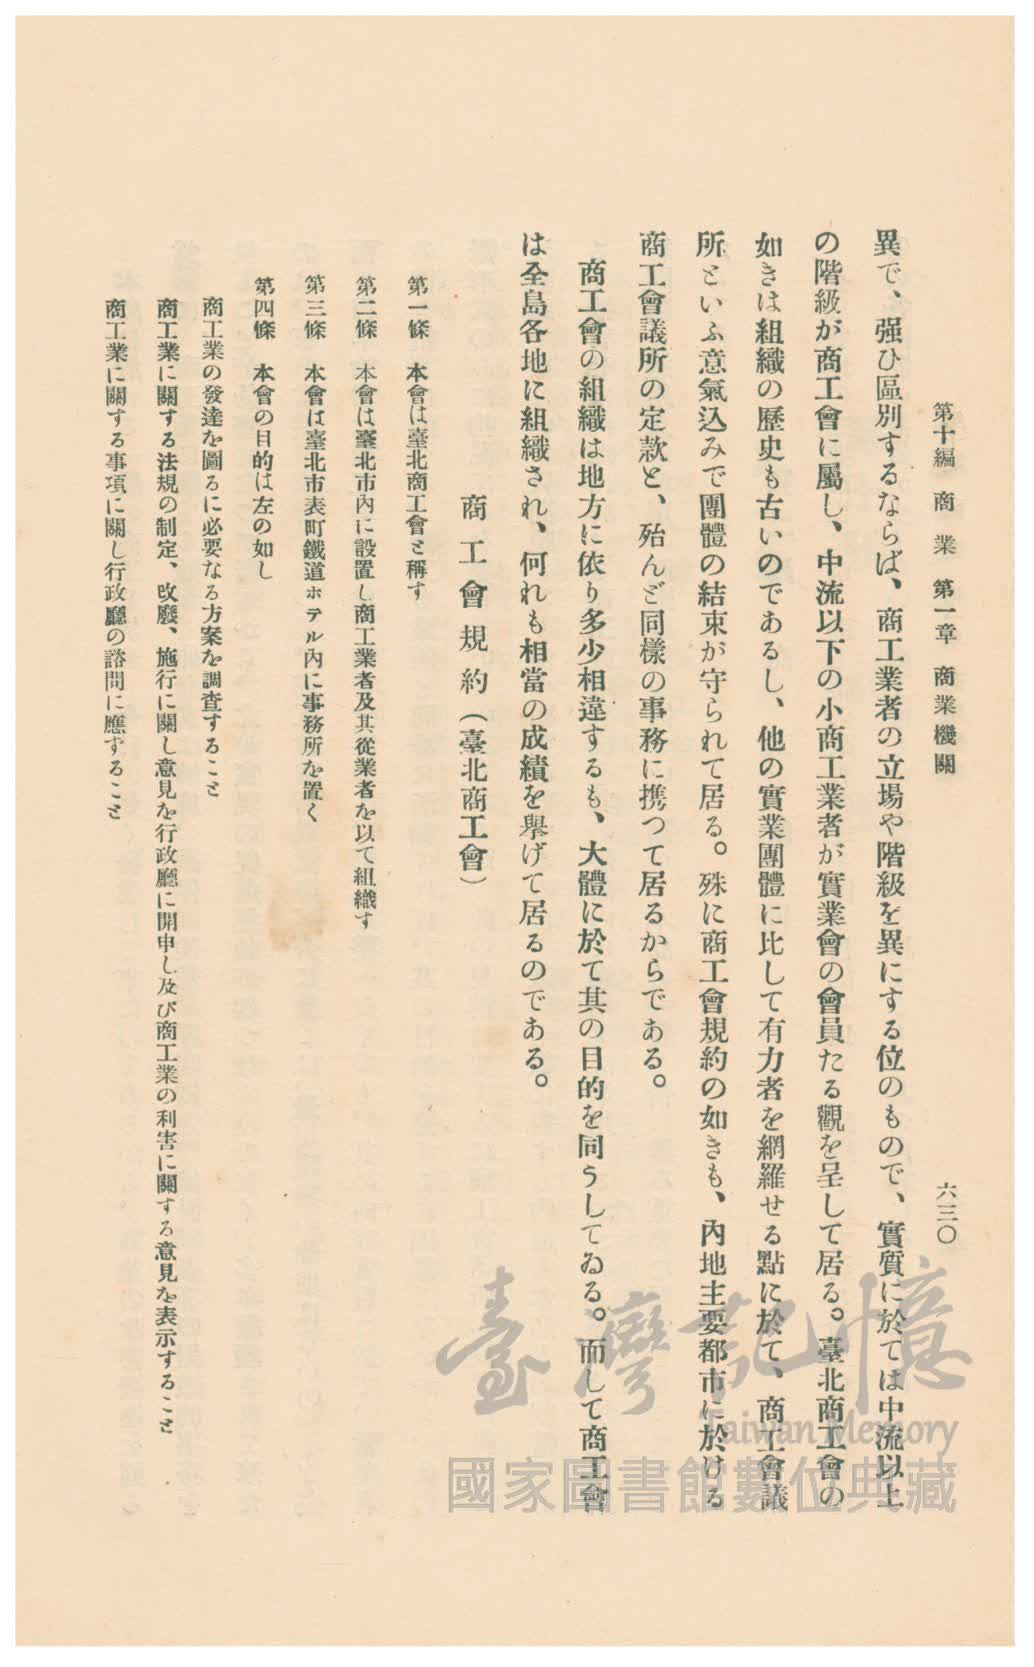 第十編　商業　第一章　商業機關　六三〇
異で、强ひ區別するならば、商工業者の立場や階級を異にする位のもので、實質に於ては中流以上
の階級が商工會に屬し、中流以下の小商工業者が實業會の會員たる觀を呈して居る。臺北商工會の
如きは組織の歷史も古いのであるし、他の實業團體に比して有力者を網羅せる點に於て、商工會議
所といふ意氣込みで團體の結束が守られて居る。殊に商工會規約の如きも、內地主要都市に於ける
商工會議所の定款と、殆んど同樣の事務に携つて居るからである。
商工會の組織は地方に依り多少相違するも、大體に於て其の目的を同うしてゐる。而して商工會
は全島各地に組織され、何れも相當の成績を擧げて居るのである。
商工會規約（臺北商工會）
第一條　本會は臺北商工會と稱す
第二條　本會は臺北市內に設置し商工業者及其從業者を以て組織す
第三條　本會は臺北市表町鐵道ホテル內に事務所を置く
第四條　本會の目的は左の如し
商工業の發達を圖るに必要なる方案を調査すること
商工業に關する法規の制定、改廢、施行に關し意見を行政廳に開申し及び商工業の利害に關する意見を表示すること
商工業に關する事項に關し行政廳の諮問に應ずること
臺灣記憶
Taiwan Memory
國家圖書館數位典藏